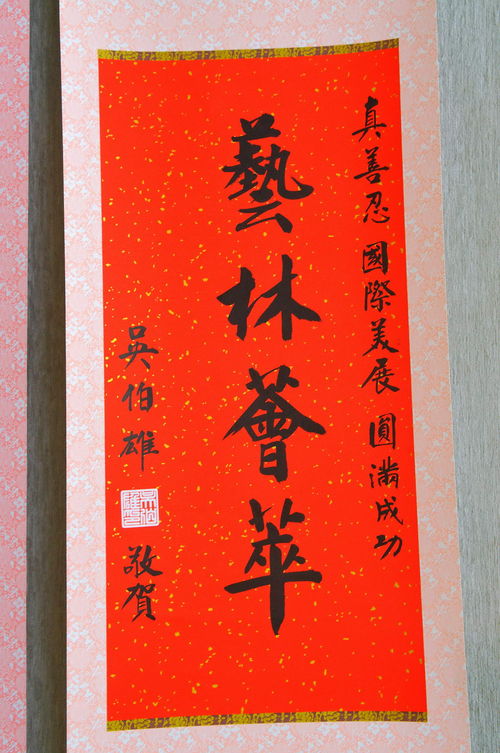 真善忍 國際美展 圓滿成功
藝林薈萃
吳伯雄 敬賀